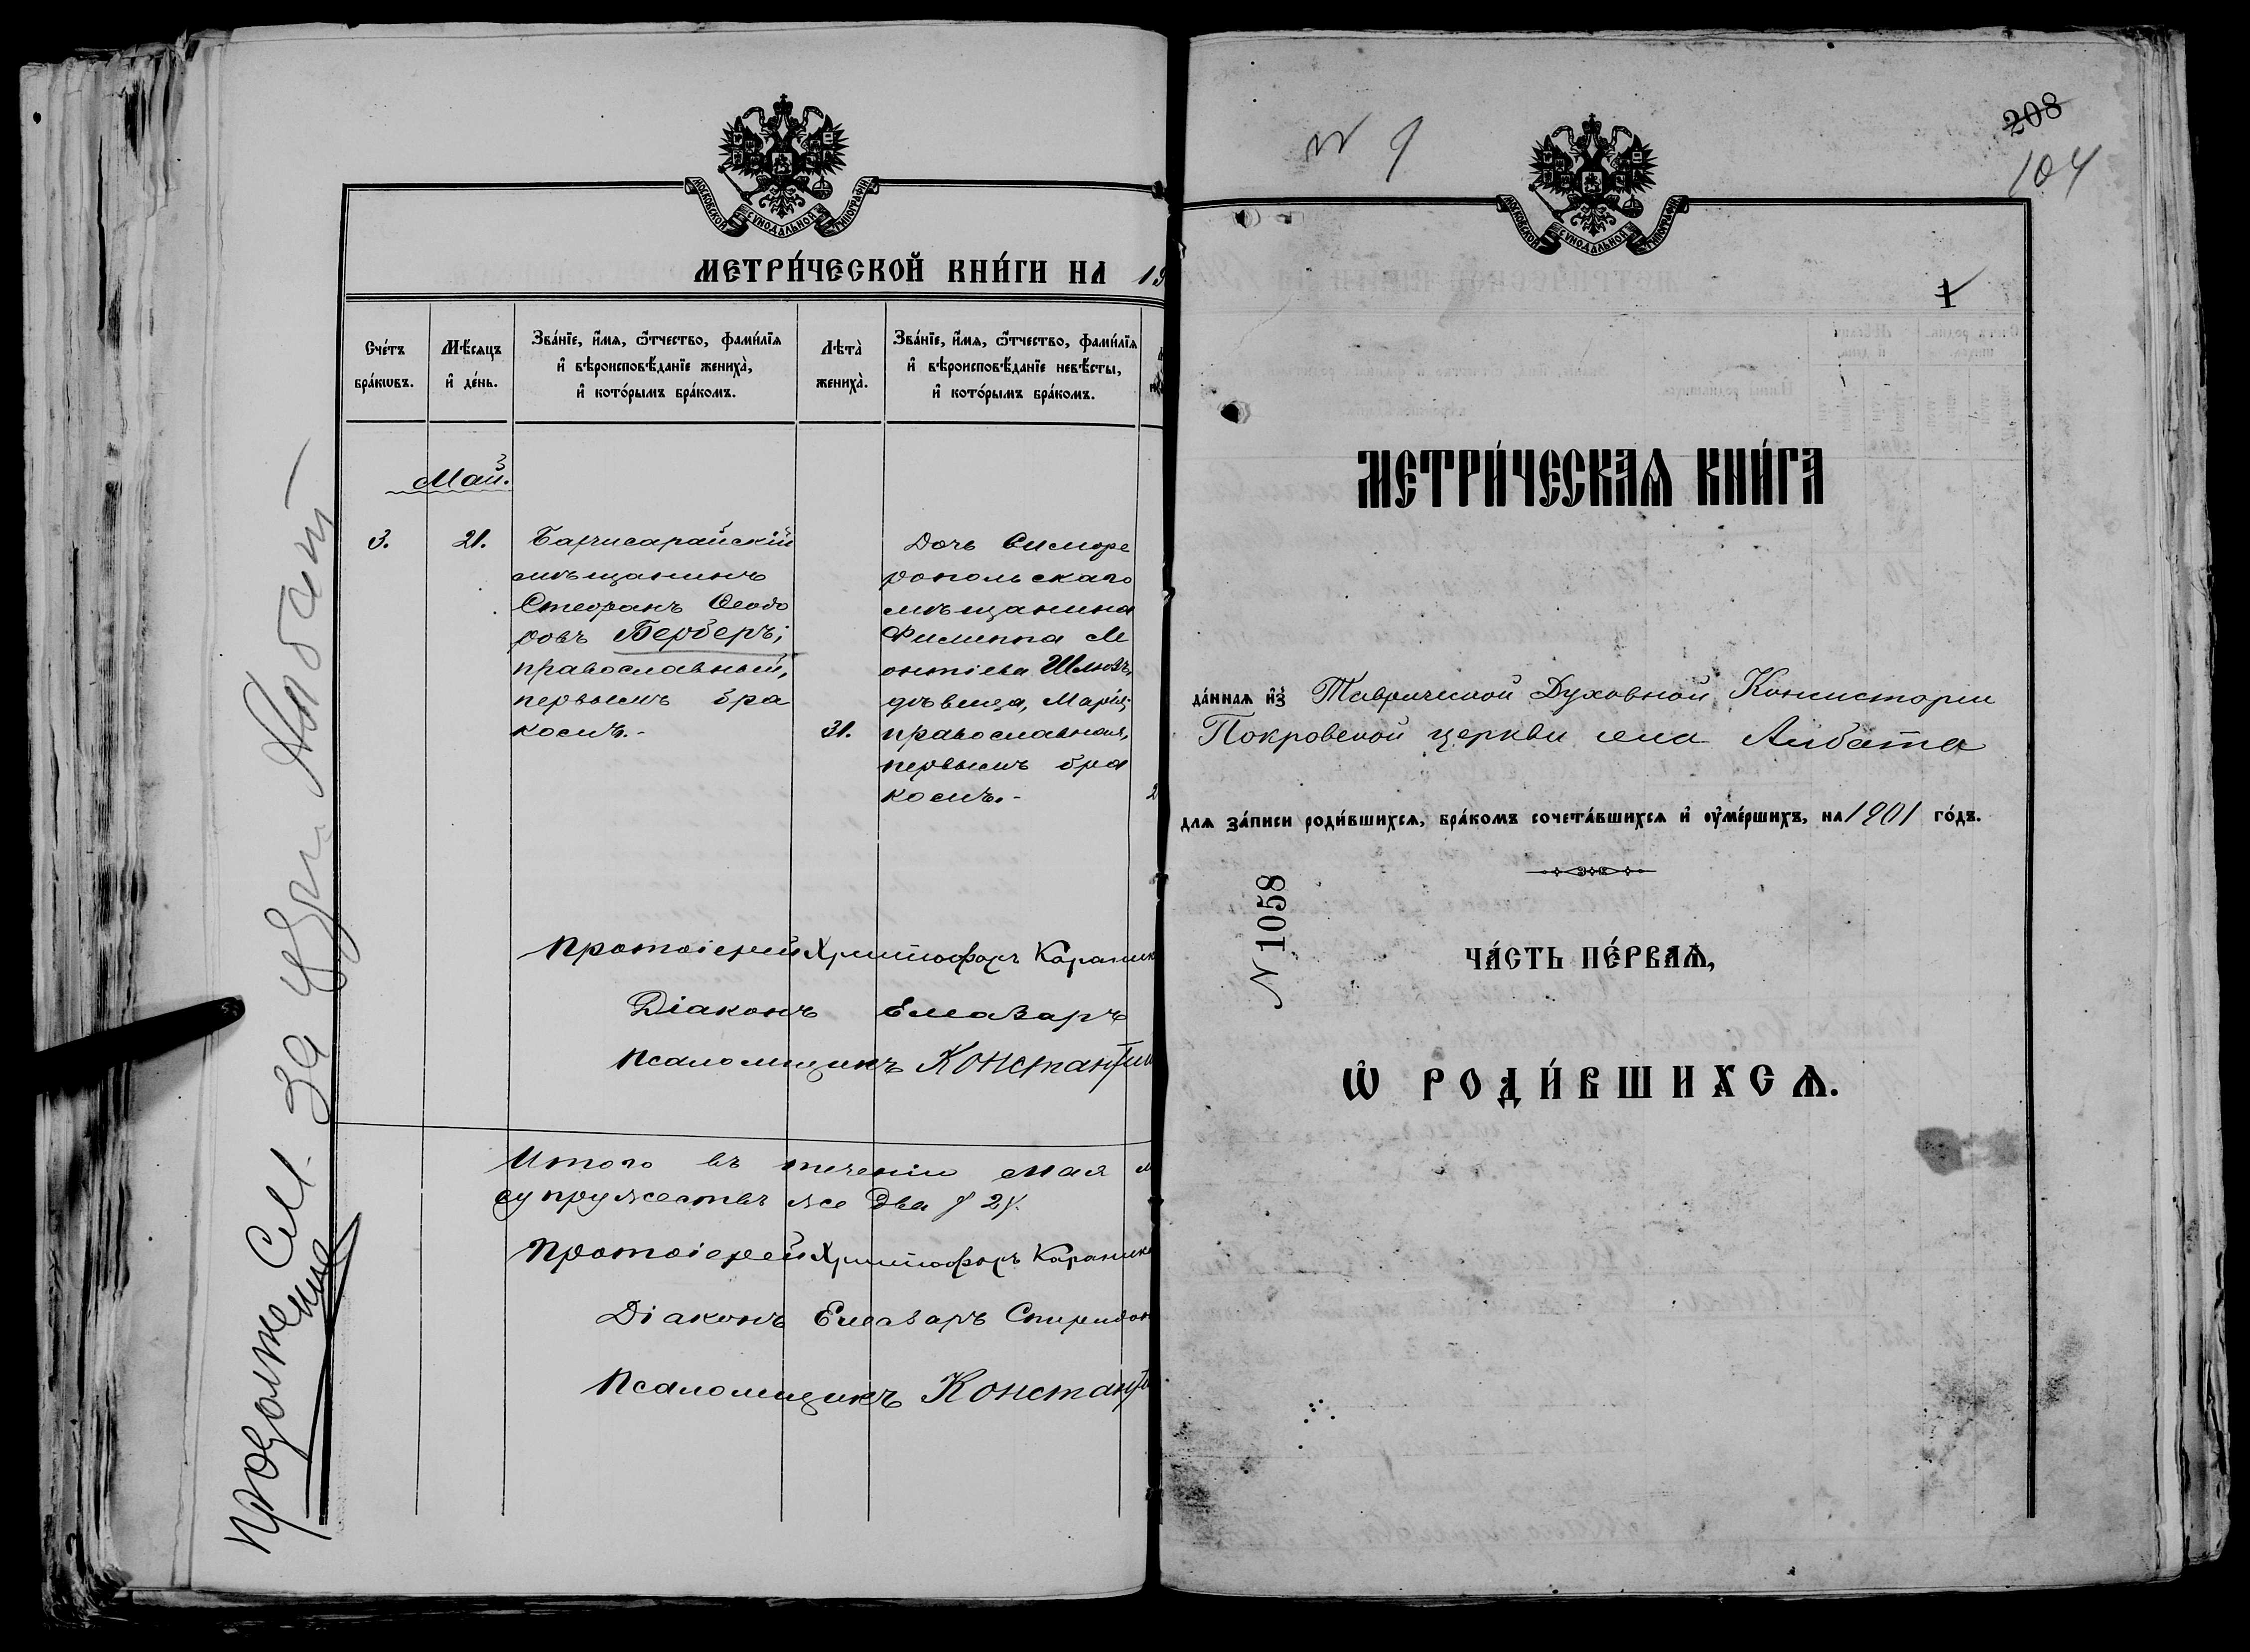 МОСКОВСКОЙ СУНОДАЛЬНОЙ ТИПОГРАФІИ
МЕТРИ́ЧЕСКОЙ КНИ́ГИ НА 19
Сче́тъ бра́кωвъ.
Мѣ́сяцъ и҆ де́нь.
Зва́нїе, и҆́мѧ, ѻ҆́тчество, фами́лїѧ
и҆ вѣроисповѣ́данїе жениха̀,
и҆ кото́рымъ бра́комъ.
Лѣта̀ жениха̀.
Зва́нїе, и҆́мѧ, ѻ҆́тчество, фами́лїѧ
и҆ вѣроисповѣ́данїе невѣ́сты,
и҆ кото́рымъ бра́комъ.
Май.
3. 21.
Бахчисарайскій
мѣщанинъ
Стефанъ Ѳеодо
ровъ Берберъ;
православный,
первымъ бра
комъ.-
31.
Дочь Симфе
ропольскаго
мѣщанина
Филиппа М
онтіева
дѣвица, Марія;
православная,
первымъ бра
комъ.-
2
Протоіерей Христофоръ
Діаконъ Елеазаръ
Псаломщикъ Константин
Итого въ теченіи мая м
супружествъ же два /2/.
Протоіерей Христофоръ
Діаконъ Елеазаръ Спиридон
Псаломщикъ Констант
Продолжение См. за
№ 9
208
104
1
МОСКОВСКОЙ СУНОДАЛЬНОЙ ТИПОГРАФІИ
МЕТРИ́ЧЕСКАѦ КНИ́ГА
да́ннаѧ и҆з̾ Таврической Духовной Консисторіи
Покровской церкви села Албата
для за́писи роди́вшихсѧ, бра́комъ сочета́вшихсѧ и҆ ᲂу҆ме́ршихъ, на 1901 го́дъ.
№ 1058
ЧА́СТЬ ПЕ́РВАѦ,
Ѽ РОДИ́ВШИХСѦ.